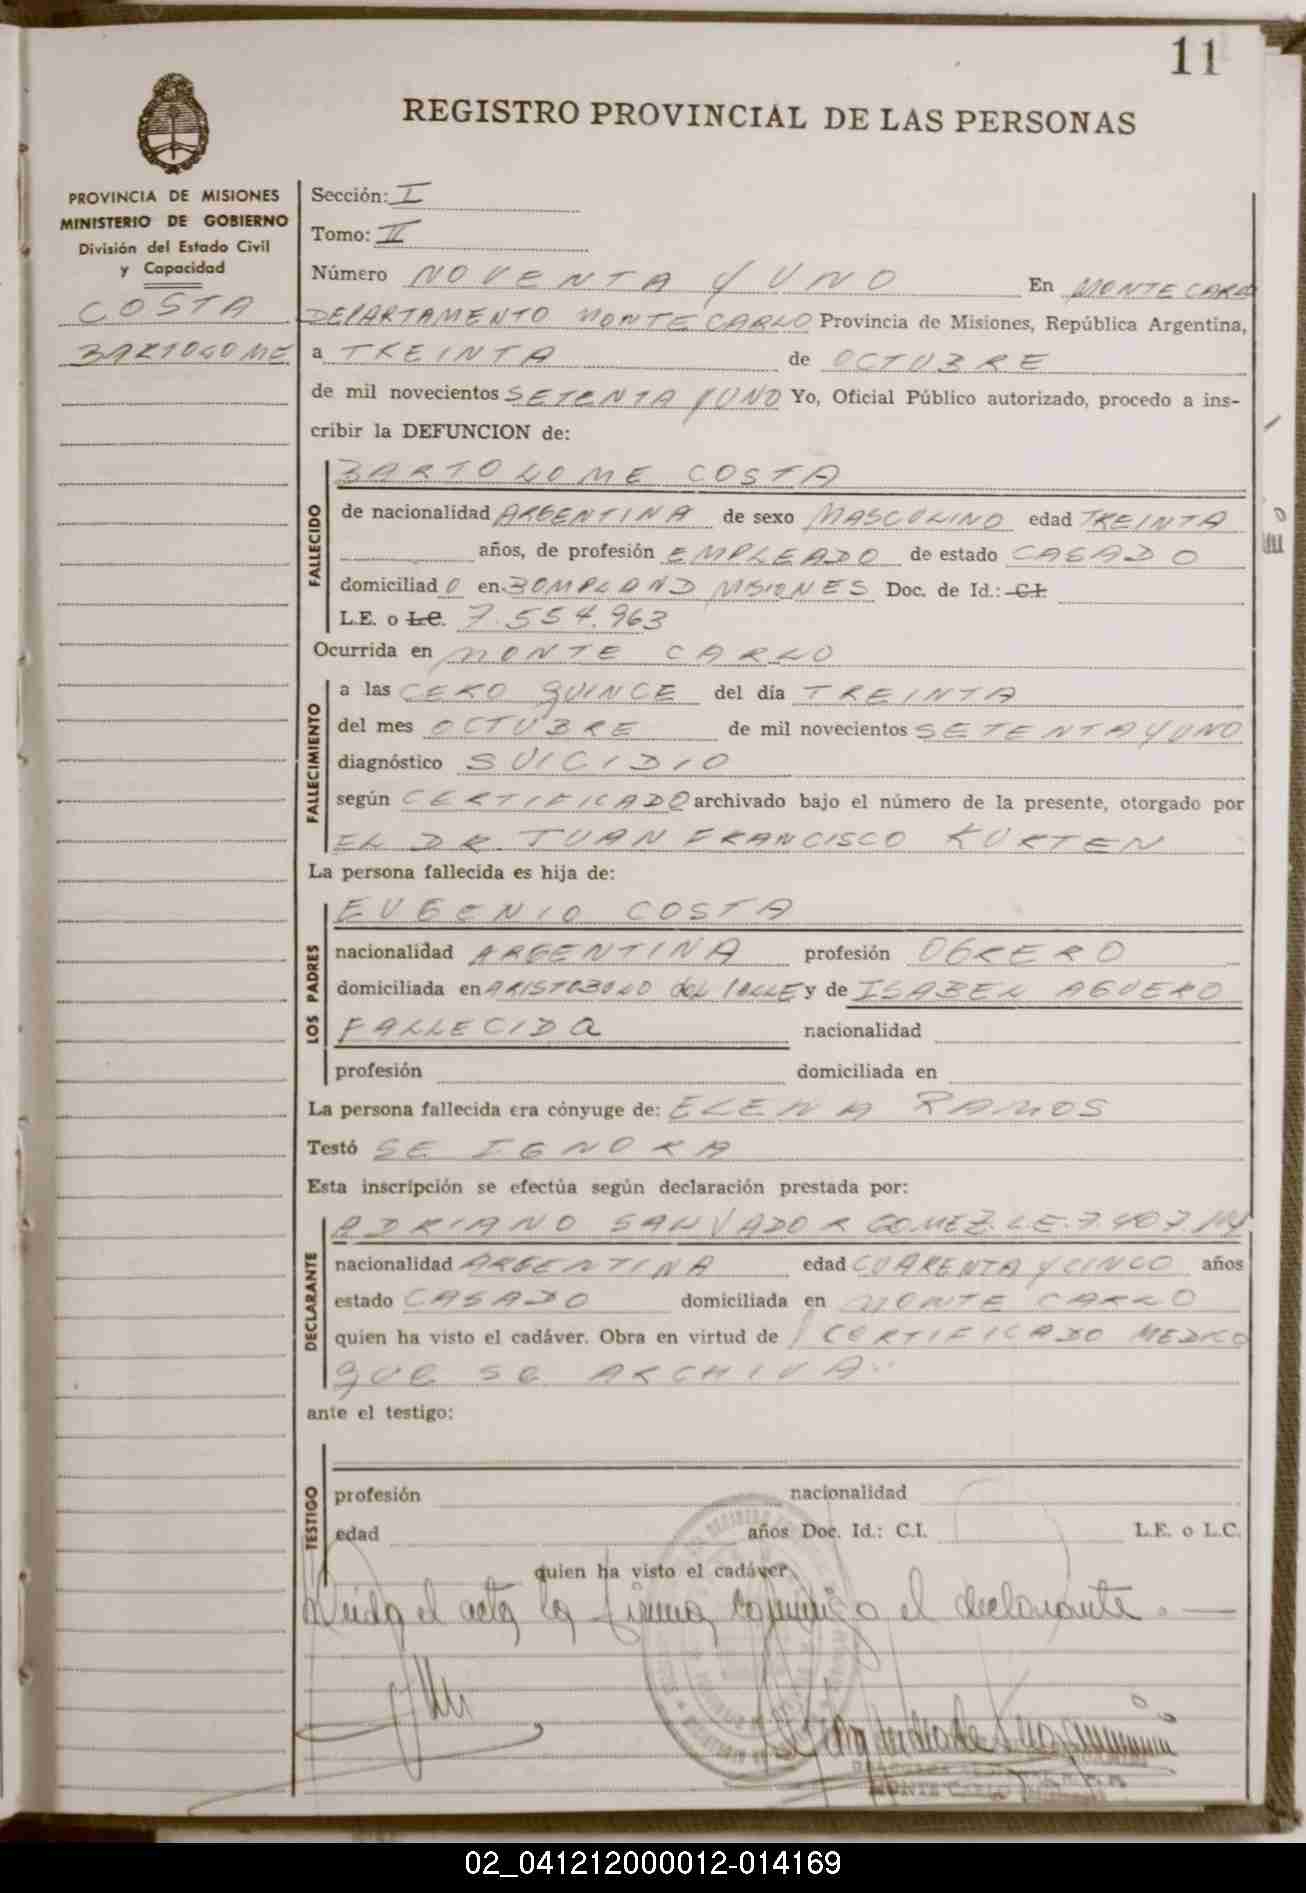 11
REGISTRO PROVINCIAL DE LAS PERSONAS
PROVINCIA DE MISIONES
MINISTERIO DE GOBIERNO
División del Estado Civil
y Capacidad
COSTA
BARTOLOME
Sección: I
Tomo: II
Número NOVENTA Y UNO En MONTE CARLO
DEPARTAMENTO MONTE CARLO Provincia de Misiones, República Argentina,
a TREINTA de OCTUBRE
de mil novecientos SETENTA Y UNO Yo, Oficial Público autorizado, procedo a ins-
cribir la DEFUNCION de:
FALLECIDO
BARTOLOME COSTA
de nacionalidad ARGENTINA de sexo MASCULINO edad TREINTA
años, de profesión EMPLEADO de estado CASADO
domiciliad O en BOMPLAND MISIONES Doc. de Id.: C.I.
L.E. o L.C. 7.554.963
Ocurrida en MONTE CARLO
FALLECIMIENTO
a las CERO QUINCE del día TREINTA
del mes OCTUBRE de mil novecientos SETENTA Y UNO
diagnóstico SUICIDIO
según CERTIFICADO archivado bajo el número de la presente, otorgado por
EL DR. JUAN FRANCISCO KURTEN
La persona fallecida es hija de:
LOS PADRES
EUGENIO COSTA
nacionalidad ARGENTINA profesión OBRERO
domiciliada en ARISTOBULO del VALLE y de ISABEL AGUERO
FALLECIDA nacionalidad
profesión domiciliada en
La persona fallecida era cónyuge de: ELENA RAMOS
Testó SE IGNORA
Esta inscripción se efectúa según declaración prestada por:
DECLARANTE
ADRIANO SALVADOR GOMEZ. L.E. 7.407.114
nacionalidad ARGENTINA edad CUARENTA Y CINCO años
estado CASADO domiciliada en MONTE CARLO
quien ha visto el cadáver. Obra en virtud de CERTIFICADO MEDICO
QUE SE ARCHIVA.
ante el testigo:
TESTIGO
profesión nacionalidad
edad años Doc. Id.: C.I. L.E. o L.C.
quien ha visto el cadáver.
Leida el acta la firma conmigo el declarante.
MONTE CARLO
02_041212000012-014169